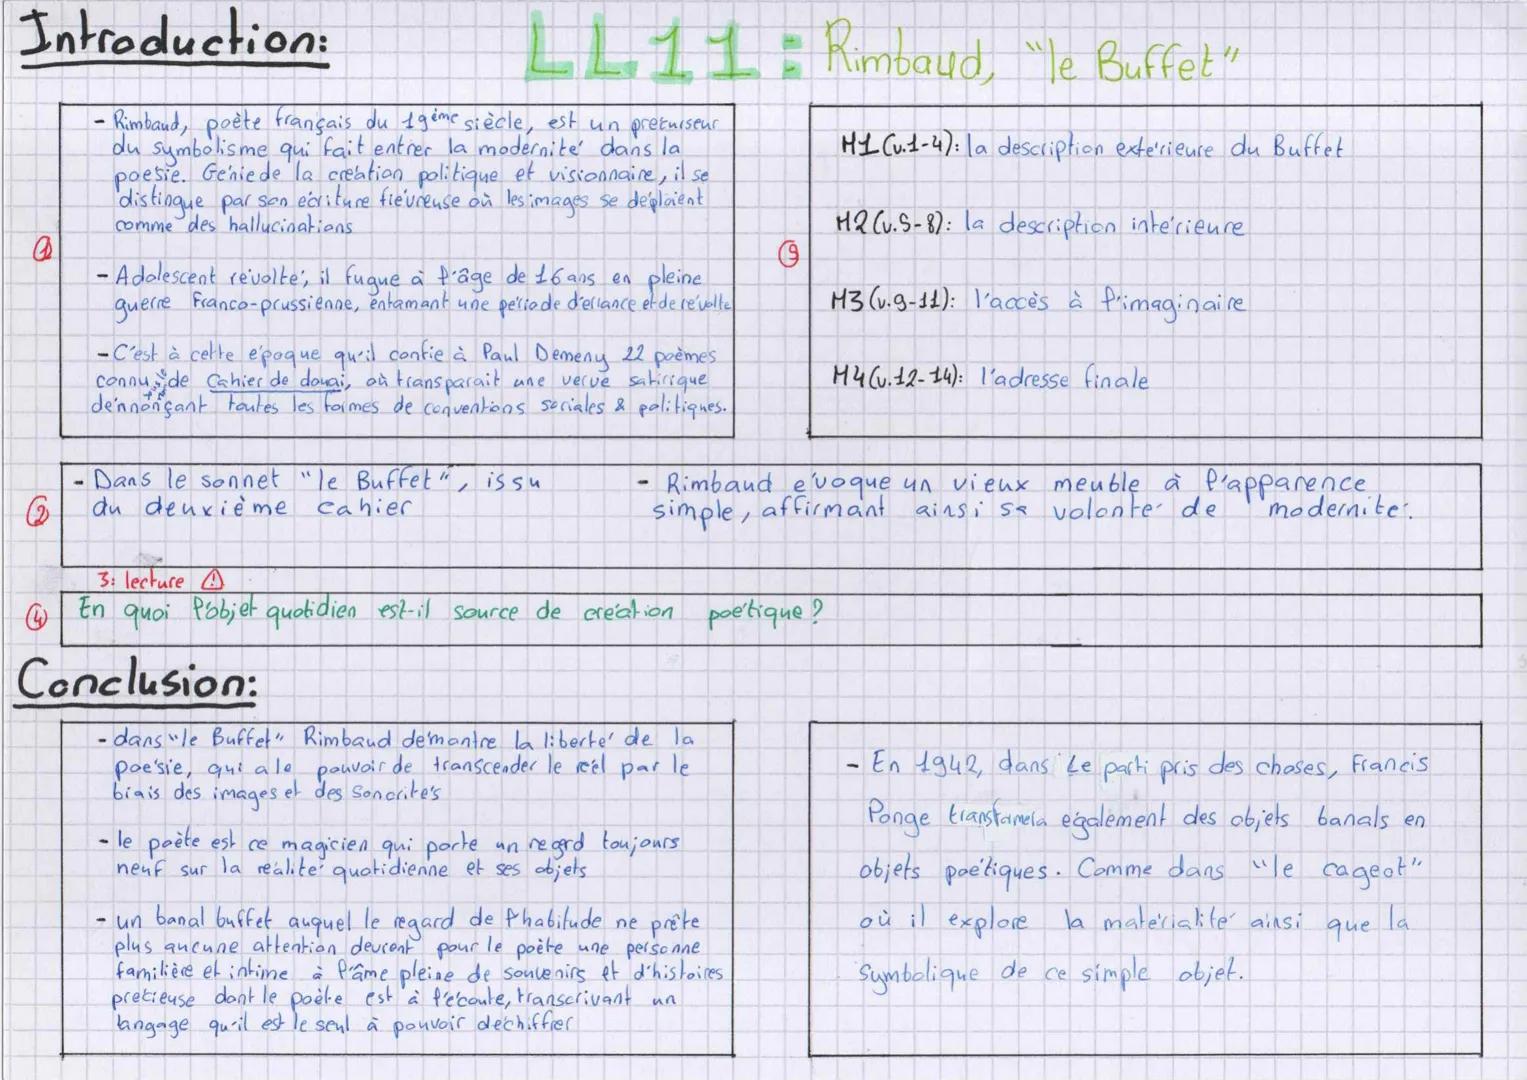 Introduction:
LL11 : Rimbaud, "le Buffet"
- Rimbaud, poète français du 19ème siècle, est un précurseur
du symbolisme qui fait entrer la modernité dans la
poésie. Génie de la création politique et visionnaire, il se
distingue par son écriture fiévreuse où les images se déploient
comme des hallucinations
①
- Adolescent révolté, il fugue à l'âge de 16 ans en pleine
guerre Franco-prussienne, entamant une période d'errance et de révolte
- C'est à cette époque qu'il confie à Paul Demeny 22 poèmes
connu de Cahier de douai, où transparait une verve satirique
dénnonçant toutes les formes de conventions sociales & politiques.
M1 (v.1-4): la description extérieure du Buffet
M2 (v.5-8): la description intérieure
⑤
M3 (v.9-11): l'accès à l'imaginaire
M4 (v.12-14): l'adresse finale
- Dans le sonnet "le Buffet", issu
du deuxième cahier
②
- Rimbaud évoque un vieux meuble à l'apparence
simple, affirmant ainsi sa volonté de modernité.
3: lecture ⚠
④ En quoi l'objet quotidien est-il source de création poétique ?
Conclusion:
- dans "le Buffet" Rimbaud démontre la liberté de la
poésie, qui a le pouvoir de transcender le réel par le
biais des images et des sonorités
- le poète est ce magicien qui porte un regard toujours
neuf sur la réalité quotidienne et ses objets
- un banal buffet auquel le regard de l'habitude ne prête
plus aucune attention devient pour le poète une personne
familière et intime à l'âme pleine de souvenirs et d'histoires
précieuse dont le poète est à l'écoute, transcrivant un
langage qu'il est le seul à pouvoir déchiffrer
- En 1942, dans Le parti pris des choses, Francis
Ponge transformera également des objets banals en
objets poétiques. Comme dans "le cageot"
où il explore la matérialité ainsi que la
symbolique de ce simple objet.